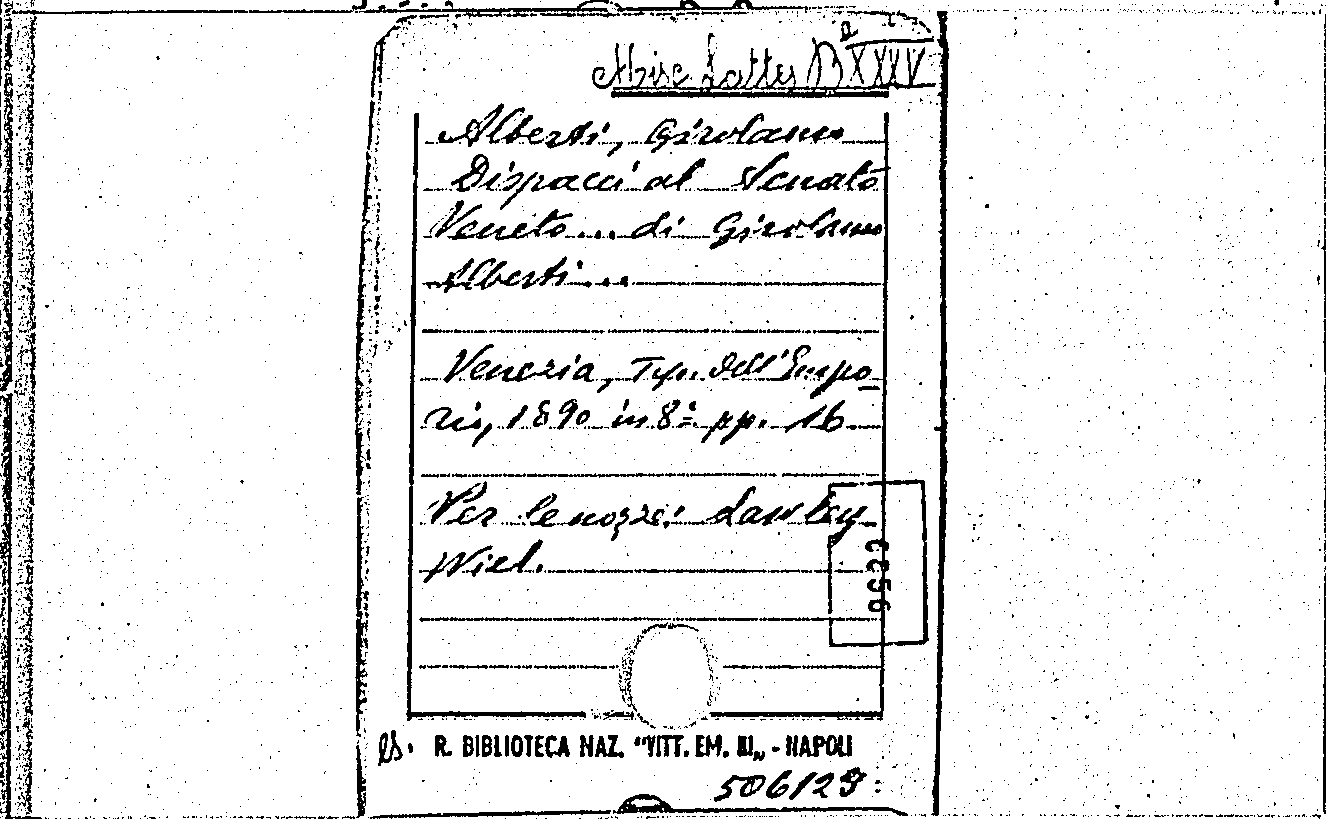 Misc. Lattes B XXXV
Alberti, Girolamo
Dispacci al Senato
Veneto... di Girolamo
Alberti...
Venezia, Tip. dell'Empo
rio, 1890 in 8º pp. 16
Per le nozze: Lawley
Wiel.
CC56
R. BIBLIOTECA NAZ. "VITT. EM. III„ - NAPOLI
506129